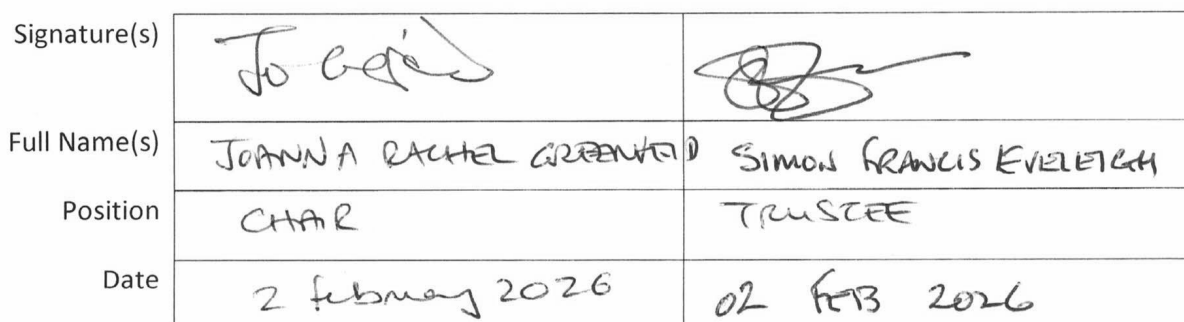 Signature(s) Jo
Full Name(s) JOANNA RACHEL GREENFIELD SIMON FRANCIS EVELEIGH
Position CHAIR TRUSTEE
Date 2 february 2026 02 FEB 2026